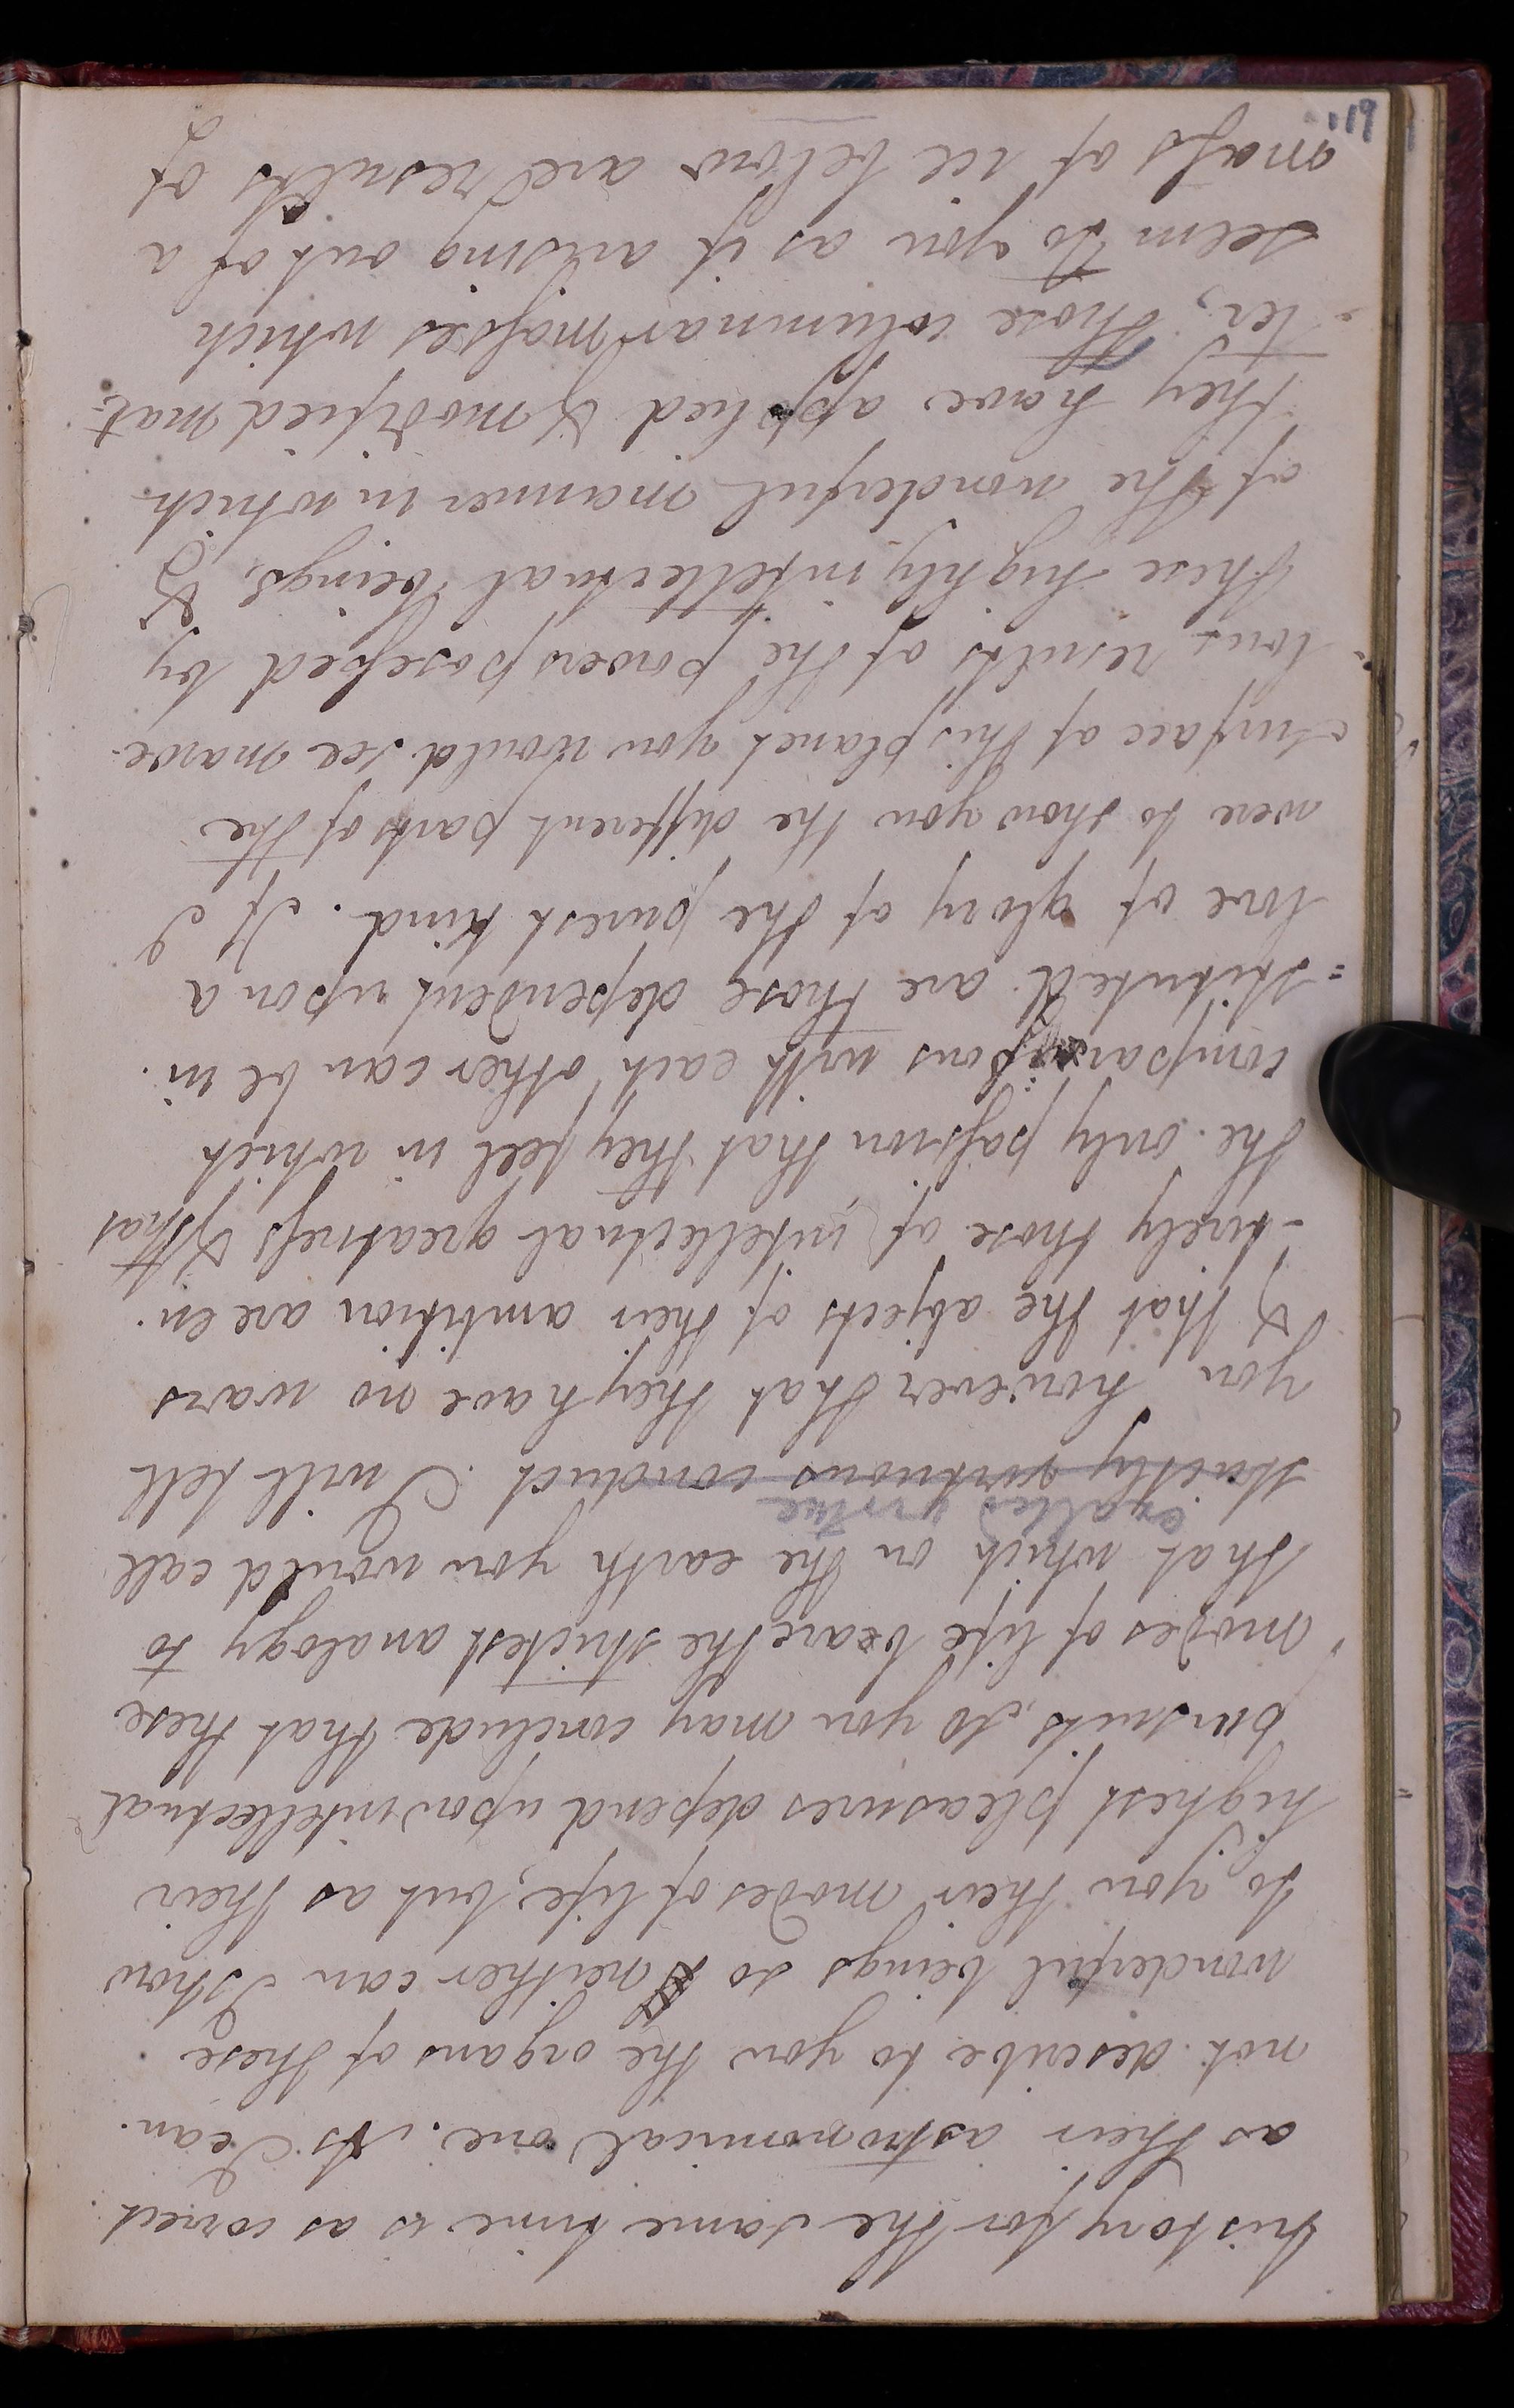 history for the same time is as correct
as their astronomical one. As I can
not describe to you the organs of these
wonderful beings so neither can I show
to you their modes of life, but as their
highest pleasures depend upon intellectual
pursuits, so you may conclude that these
modes of life bear the strictest analogy to
that which on the earth you would call
exalted virtue
strictly virtuous conduct. I will tell
you however that they have no wars
& that the objects of their ambition are en-
-tirely those of intellectual greatness & that
the only passion that they feel in which
comparisons with each other can be in-
=stituted are those dependent upon a
love of glory of the purest kind. If I
were to show you the different parts of the
surface of this planet you would see marve-
-lous results of the powers possessed by
these highly intellectual beings, &
of the wonderful manner in which
they have applied & modified mat-
-ter, those columnar masses which
seem to you as if arising out of a
mass of ice below are results of
119